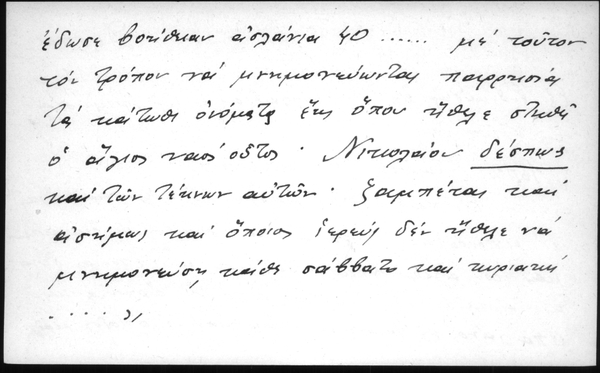 ἔδωσε βοήθειαν ἀσλάνια 40 ...... μέ τοῦτον
τόν τρόπον νά μνημονεύωνται παρρησίᾳ
τά κάτωθι ὀνόματα ἕως ὅπου ἤθελε στηθῆ
ὁ ἅγιος ναός οὗτος. Νικολάου δέσπως
καί τῶν τέκνων αὐτῶν. Ζαμπέτας καί
ἀσήμως καί ὅποιος ἱερεύς δέν ἤθελε νά
μνημονεύσῃ κάθε σάββατο καί κυριακή
.... »,